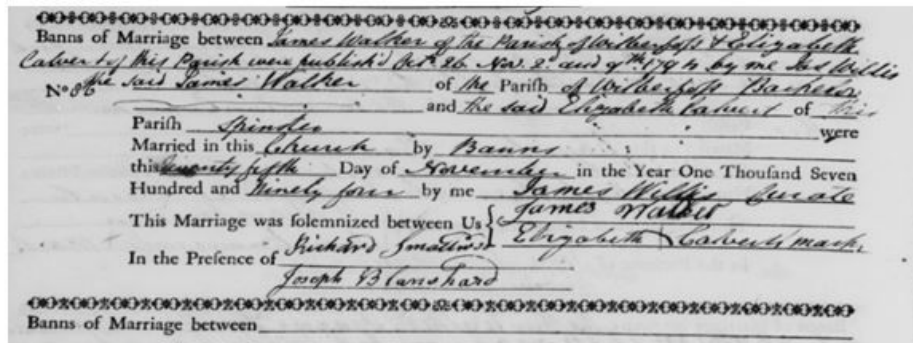 Banns of Marriage between James Walker of the Parish of Wilberfoss & Elizabeth
Calvert of this Parish were publish'd Octr. 26 Nov. 2d. and 9th 1794 by me Jas Willis
No 86 the said James Walker of the Parish of Wilberfoss Bachelor
and the said Elizabeth Calvert of this
Parish Spinster were
Married in this Church by Banns
this twenty fifth Day of November in the Year One Thousand Seven
Hundred and Ninety four by me James Willis Curate
This Marriage was solemnized between Us { James Walker
Elizabeth Calvert's mark
In the Presence of Richard
Joseph Blanshard
Banns of Marriage between